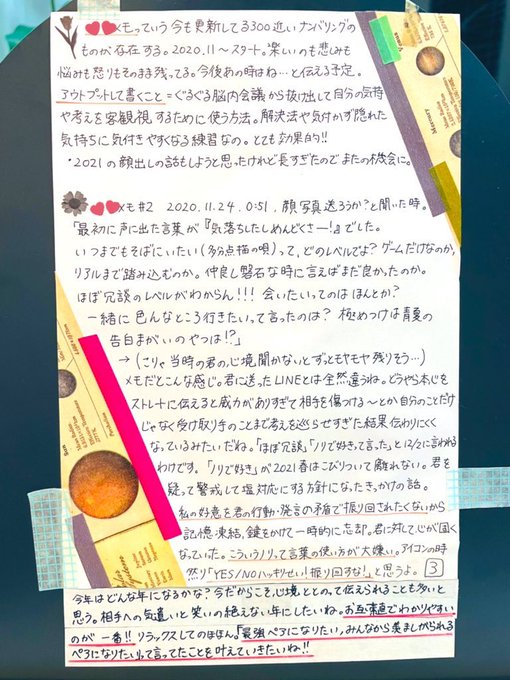 ❤❤メモっていう今も更新してる300近いナンバリングの
ものが存在する。2020.11〜スタート。楽しいのも悲しみも
悩みも怒りもそのまま残ってる。今後あの時はね…と伝える予定。
アウトプットして書くこと=ぐるぐる脳内会議から抜け出して自分の気持
や考えを客観視するために使う方法。解決法や気付かず隠れた
気持ちに気付きやすくなる練習なの。とても効果的!!
・2021の顔出しの話もしようと思ったけれど長すぎたのでまたの機会に。
❤❤メモ#2 2020.11.24.0:51.顔写真送ろうか?と聞いた時。
「最初に声に出た言葉が『気落ちしたしめんどくさー!』でした。
いつまでもそばにいたい(多分点描の唄)って、どのレベルでよ?ゲームだけなのか、
リアルまで踏み込むのか。仲良し磐石な時に言えばまだ良かったのか。
ほぼ冗談のレベルがわからん!!!会いたいってのはほんとか?
一緒に色んなところ行きたいって言ったのは?極めつけは青夏の
告白まがいのやつは!?」
→(こりゃ当時の君の心境聞かないとずっとモヤモヤ残りそう…)
メモだとこんな感じ。君に送ったLINEとは全然違うね。どうやら本心を
ストレートに伝えると威力がありすぎて相手を傷つける〜とか自分のことだけ
じゃなく受け取り手のことまで考えを巡らせすぎた結果伝わりにくく
なっているみたいだね。「ほぼ冗談」「ノリで好きって言った」と12/2に言われる
わけです。「ノリで好き」が2021春はこびりついて離れない。君を
疑って警戒して塩対応にする方針になったきっかけの話。
私の好意を君の行動・発言の矛盾で振り回されたくないから
記憶凍結、鍵をかけて一時的に忘却。君に対して心が固く
なっていた。こういうノリって言葉の使い方が大嫌い。アイコンの時
然り「YES/NOハッキリせい!振り回すな!」と思うよ。 3
今年はどんな年になるかな?今だからこそ、心境ととのって伝えられることも多いと
思う。相手への気遣いと笑いの絶えない年にしたいね。お互素直でわかりやすい
のが一番!!リラックスしてのほほん。「最強ペアになりたい、みんなから羨ましがられる
ペアになりたい」って言ってたことを叶えていきたいね!!
Venus
Mercury
Sun